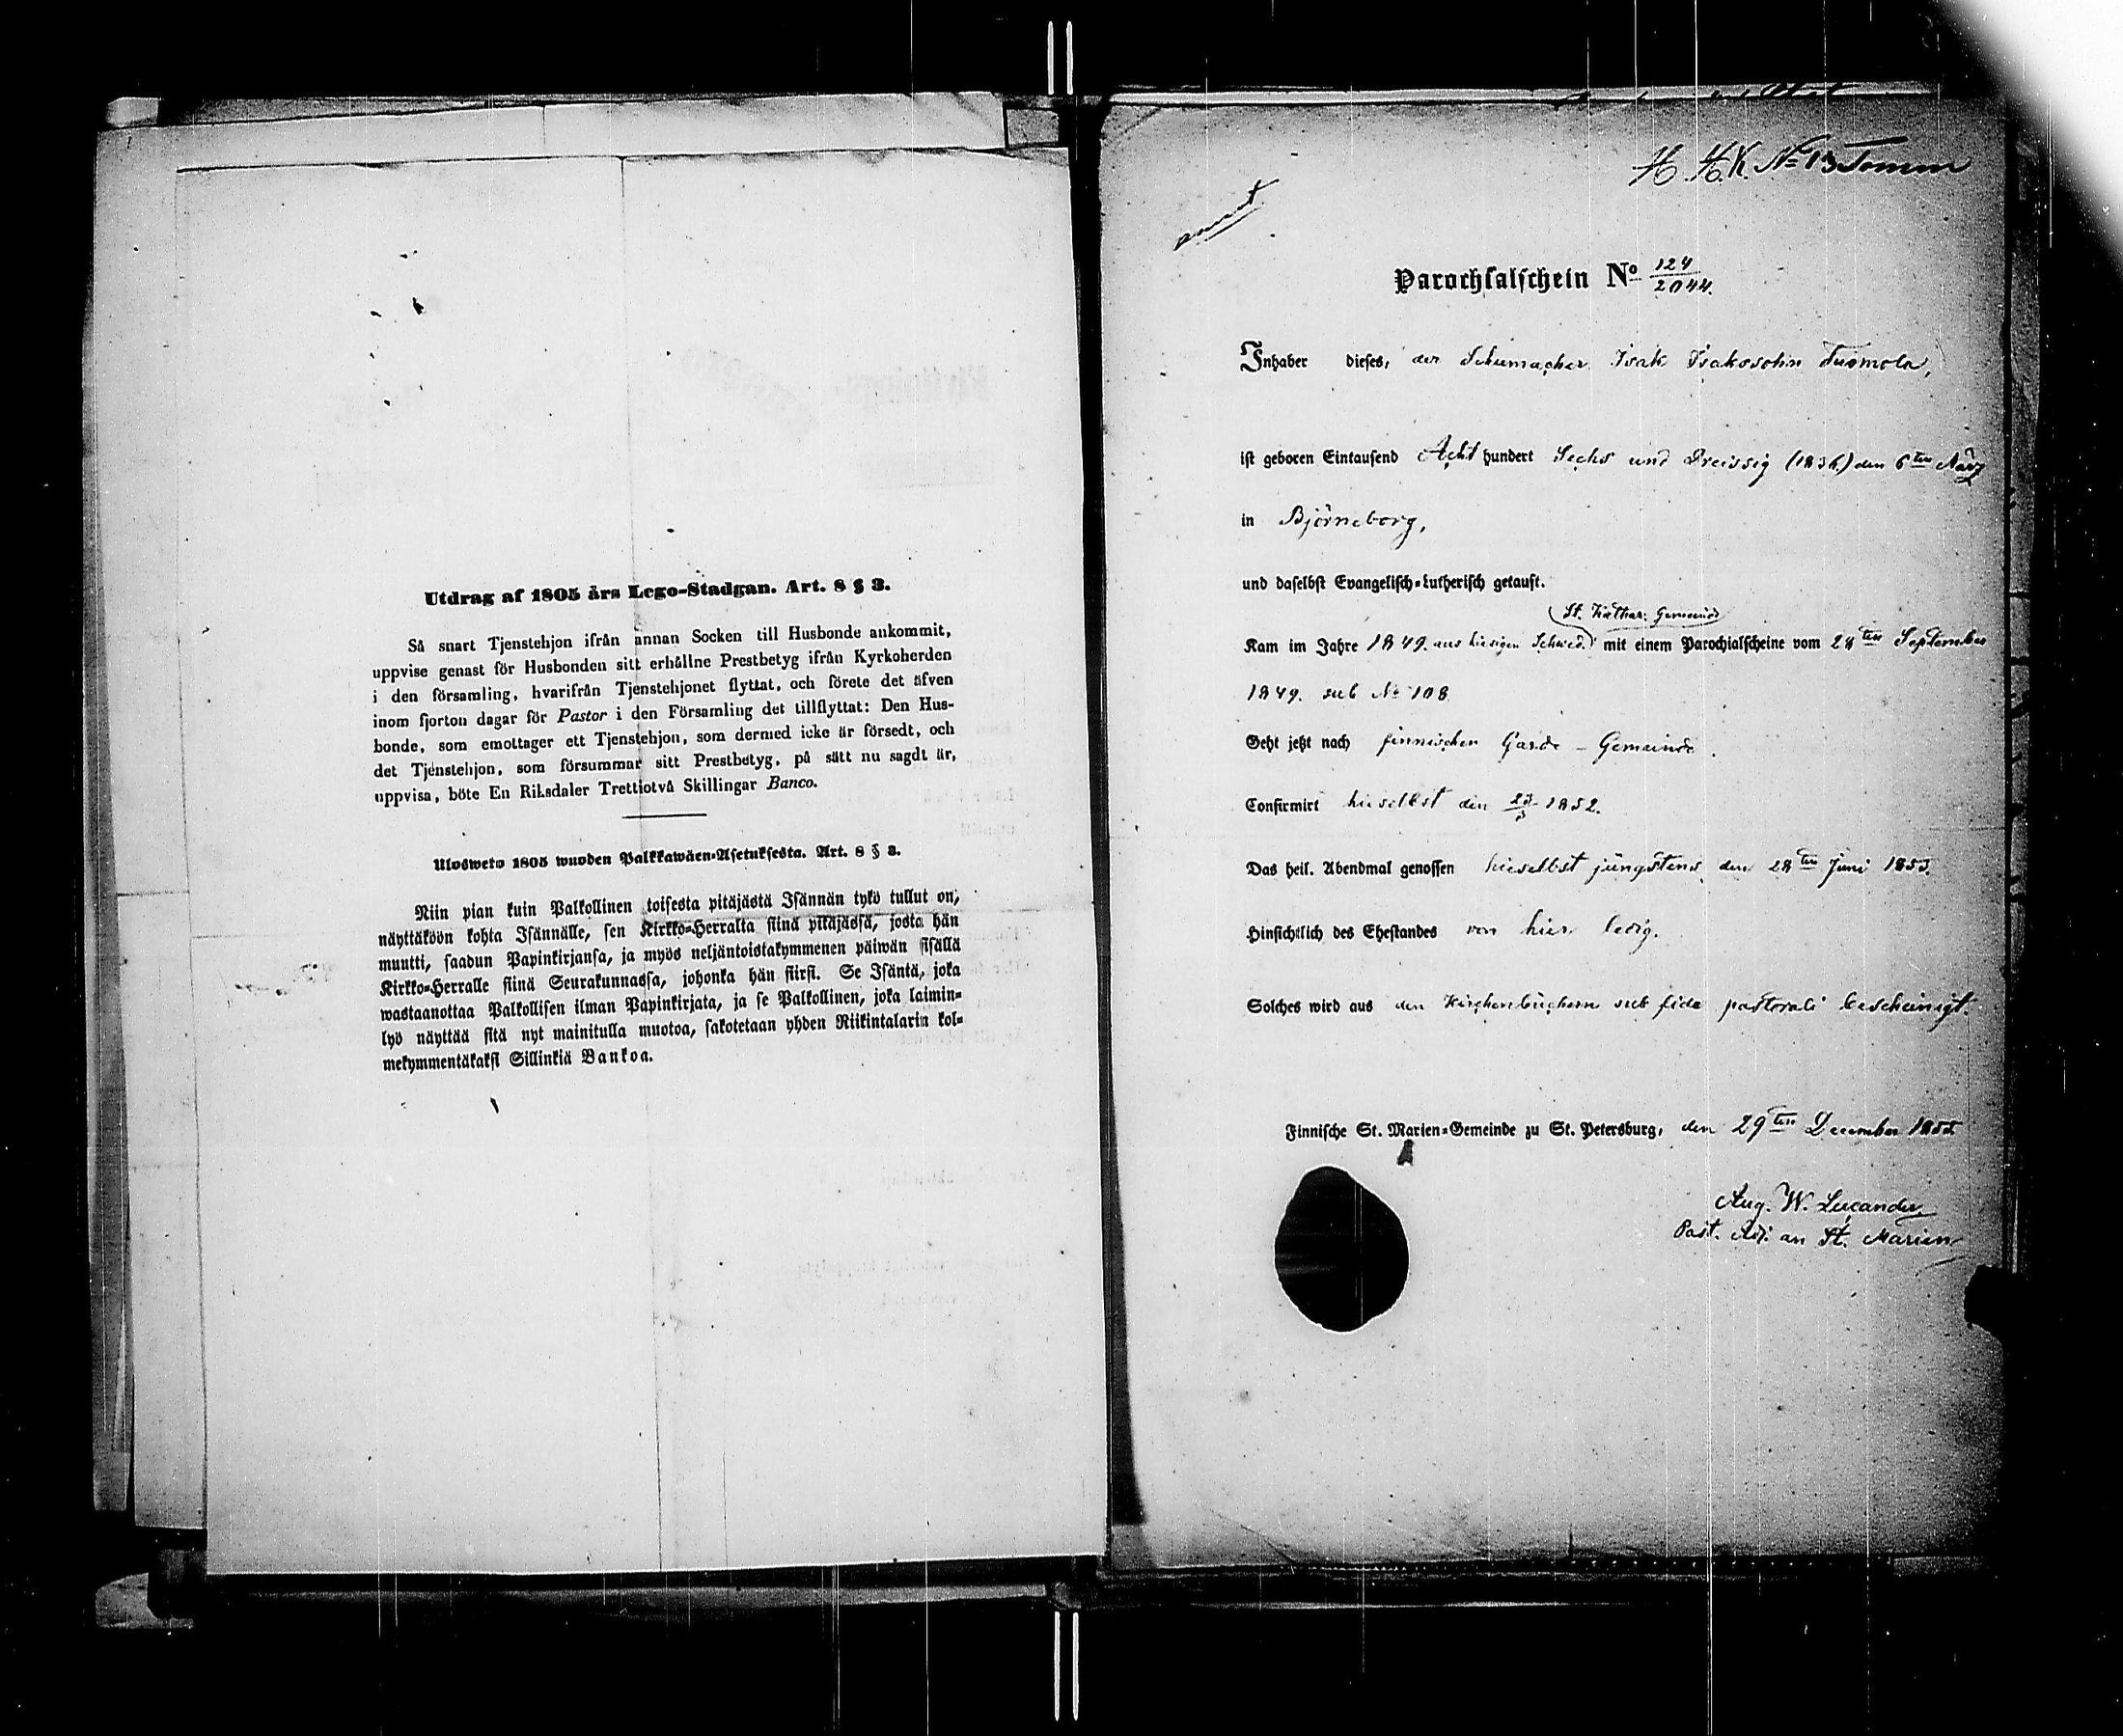 Utdrag af 1805 års Lego-Stadgan. Art. 8 § 3.
Så snart Tjenstehjon ifrån annan Socken till Husbonde ankommit,
uppvise genast för Husbonden sitt erhållne Prestbetyg ifrån Kyrkoherden
i den församling, hvarifrån Tjenstehjonet flyttat, och förete det äfven
inom fjorton dagar för Pastor i den Församling det tillflyttat: Den Hus-
bonde, som emottager ett Tjenstehjon, som dermed icke är försedt, och
det Tjenstehjon, som försummar sitt Prestbetyg, på sätt nu sagdt är,
uppvisa, böte En Riksdaler Trettiotvå Skillingar Banco.
Ulosweto 1805 wuoden Palkkawäen-Asetuksesta. Art. 8 § 3.
Niin pian kuin Palkollinen toisesta pitäjästä Isännän tykö tullut on,
näyttäköön kohta Isännälle, sen Kirkko-Herralta siinä pitäjässä, josta hän
muutti, saadun Papinkirjansa, ja myös neljäntoistakymmenen päiwän sisällä
Kirkko-Herralle siinä Seurakunnassa, johonka hän siirsi. Se Isäntä, joka
wastaanottaa Palkollisen ilman Papinkirjata, ja se Palkollinen, joka laimin-
lyö näyttää sitä nyt mainitulla muotoa, sakotetaan yhden Riikintalarin kol-
mekymmentäkaksi Sillinkiä Bankoa.
H. H. K. No 13
Parochialschein No 124/2044.
Inhaber dieses, der Schumacher Isak Isakssohn Tuomola,
ist geboren Eintausend Acht hundert Sechs und Dreissig (1836) den 6ten März
in Björneborg,
und daselbst Evangelisch-Lutherisch getauft.
St. Kathar. Gemeinde
Kam im Jahre 1849. aus hiesigen Schwed. mit einem Parochialscheine vom 28ten September
1849. sub No 108
Geht jetzt nach finnischen Garde - Gemeinde.
Confirmirt hieselbst den 23/3 1852.
Das heil. Abendmal genossen hieselbst jüngstens den 28ten Juni 1855.
Hinsichtlich des Ehestandes von hier ledig.
Solches wird aus den Kirchenbüchern sub fide pastorali bescheinigt.
Finnische St. Marien-Gemeinde zu St. Petersburg, den 29ten December 1855
Aug. W. Lucander
Past. Adj. an St. Marien